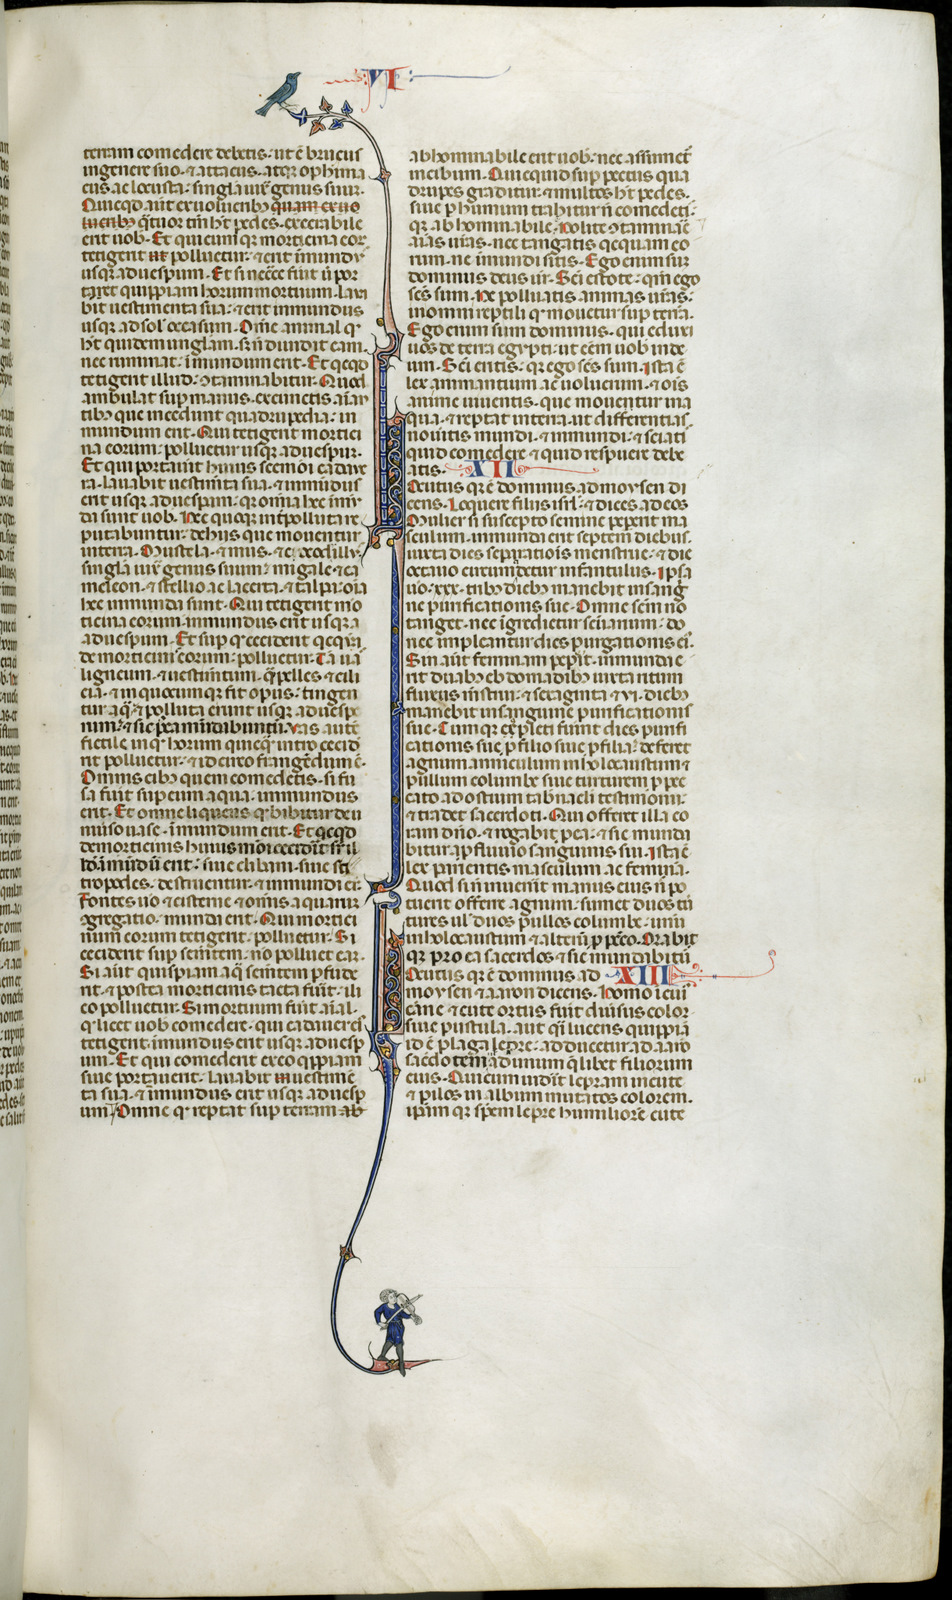 VI
terram comedere debetis· ut ẽ brucus
in genere suo· ⁊ attacus· atqꝫ ophima
cus ac locusta· singła iuxͣ genus suum·
Quicqd̾ aut̃ ex uolucribꝫ quam ex uo
lucribꝫ q̃tuor tm̃ hꝫ pedes· execrabile
erit uob̾· Et quicumqꝫ morticina eoꝝ
tetigerit ut polluetur· ⁊ erit inmundꝰ
usqꝫ ad uesperum· Et si necesse fuit ut por
tet quippiam horum mortuum· laua
bit uestimenta sua· ⁊ erit inmundus
usqꝫ ad sol̾ occasum· Omne animal qd̾
hꝫ quidem ungulam· sꝫ ñ diuidit eam
nec ruminat· ĩmundum erit· Et quicqd̾
tetigerit illud· ꝯtaminabitur· Quod
ambulat sup̱ manus· ex cunctis aĩan
tibꝫ que incedunt quadrupedia· in
mundum erit· Qui tetigerit mortici
na eorum· polluetur usqꝫ ad uesp̱um·
Et qui portauit huiuscemodi cadaue
ra· lauabit uestimta sua· ⁊ inmundus
erit usqꝫ ad uesp̱um· qꝫ omia hec inmũ
da sunt uob̾· Hec quoqꝫ inẽ polluta re
putabuntur· de hijs que mouentur
in terra· Mustela· ⁊ mus· ⁊ cocodillꝰ
singła iuxͣ genus suum· migale· ⁊ ca
meleon· ⁊ stellio ac lacerta· ⁊ talpa· oĩa
hec inmunda sunt· Qui tetigerit mor
ticina eorum· inmundus erit usqꝫ
ad uesperum· Et sup̱ qd̾ ceciderit quicqͣ
de morticinis eorum· polluetur· Tã uas
ligneum· ⁊ uestimtum· qͣ pelles ⁊ cili
cia· ⁊ in quocumqꝫ fit opus· tingen
tur aqͣ· ⁊ polluta erunt usqꝫ ad uesp̱e
rum· ⁊ sic p̱ea mundabuntur· Vas autẽ
fictile in qd̾ horum quicqͣ intro cecid̾
rit polluetur· ⁊ idcirco frangẽdum ẽ·
Omnis cibꝰ quem comedetis· si fu
sa fuit sup̱ eum aqua· inmundus
erit· Et omne liquens qd̾ bibitur de u
niuso uase· ĩmundum erit· Et quicqd̾
de morticinis huiusmodi ceciderit sup̱ il
lud· ĩmũdũ erit· siue clibani· siue ch̾
tropodes· destruentur· ⁊ inmundi er̃·
Fontes uo ⁊ cisterne ⁊ omnis aquarum
ꝯgregatio· munda erit· Qui mortici
num eorum tetigerit· polluetur· Si
ceciderit sup̱ semtem· nõ polluet eam·
Si aut̃ quispiam aqͣ semtem p̱fude
rit· ⁊ postea morticinis tacta fuit· ili
co polluetur· Si mortuum fuit aĩal·
qd̾ licet uob̾ comedere· qui cadauer eiꝰ
tetigerit· inmundus erit usqꝫ ad uesp̱
um· Et qui comederit ex eo quippiam
siue portauerit· lauabit uestimẽ
ta sua· ⁊ inmundus erit usqꝫ ad uesp̱
um· Omne qd̾ reptat sup̱ terram· ab
abhominabile erit uob̾· nec assumet̃
in cibum· Quicquid sup̱ pectus qua
drupes graditur· ⁊ multos hꝫ pedes·
siue p̱ humum trahitur ñ comedetis·
qꝫ abhominabile· Nolite ꝯtaminare
aĩas uras· nec tangatis quicquam eo
rum· ne inmundi sitis· Ego enim sum
dominus deus ur̃· Sc̃i estote· qm̃ ego
sc̃s sum· Ne polluatis animas uras·
in omni reptili qd̾ mouetur sup̱ terrã·
Ego enim sum dominus· qui eduxi
uos de terra egypti· ut eẽm uob̾ in de
um· Sc̃i eritis· qꝫ ego sc̃s sum· Ista ẽ
lex animantium ac uolucrum· ⁊ ois
anime uiuentis· que mouentur in a
qua· ⁊ reptat in terra· ut differentias
noueritis mundi· ⁊ inmundi· ⁊ sciati
quid comedere ⁊ quid respuere debe
atis· XII
Locutus qꝫ ẽ dominus ad moysen di
cens· Loquere filiis isrl̾· ⁊ dices ad eos
Mulier si suscepto semine pep̱erit ma
sculum· inmunda erit septem diebus·
iuxta dies sep̱ationis menstrue· ⁊ die
octauo circumcidetur infantulus· Ipsa
uo· xxx· tribꝫ diebꝫ manebit in sang̃
ne purificationis sue· Omne sc̃m nõ
tanget· nec ĩgredietur sc̃uarium· do
nec impleantur dies purgationis ei·
Sin aut̃ feminam pep̱it· inmunda e
rit duabꝫ ebdomadibꝫ iuxta ritum
fluxus menstrui· ⁊ sexaginta ⁊ vi· diebꝫ
manebit in sanguine purificationis
sue· Cumqꝫ expleti fuint dies purifi
cationis sue p̱ filio siue p̱ filia· deferet
agnum anniculum in holocaustum ⁊
pullum columbe siue turturem p̱ pec
cato ad ostium tab̾nacli testimonii·
⁊ tradet sacerdoti· Qui offeret illa co
ram dño· ⁊ rogabit p̱ ea· ⁊ sic munda
bitur a p̱fluuio sanguinis sui· Ista ẽ
lex parientis masculum ac feminã·
Quod si ñ inuenit manus eius ñ po
tuerit offerre agnum· sumet duos tur
tures ul̾ duos pullos columbe· unũ
in holocaustum ⁊ alterũ p̱ pc̃co· Orabit
qꝫ pro ea sacerdos ⁊ sic mundabitur
Locutus qꝫ ẽ dominus ad XIII
moysen ⁊ aaron dicens· Homo ĩ cuiꝰ
carne ⁊ cute ortus fuit diuisus color
siue pustula· aut qͣsi lucens quippiã
id ẽ plaga lepre· adducetur ad aarõ
sac̃dotem ⁊ ad unum quẽlibet filiorum
eius· Qui cum uid̾it lepram in cute
⁊ pilos in album mutatos colorem·
ip̃am qꝫ sp̃em lepre humiliorẽ cute